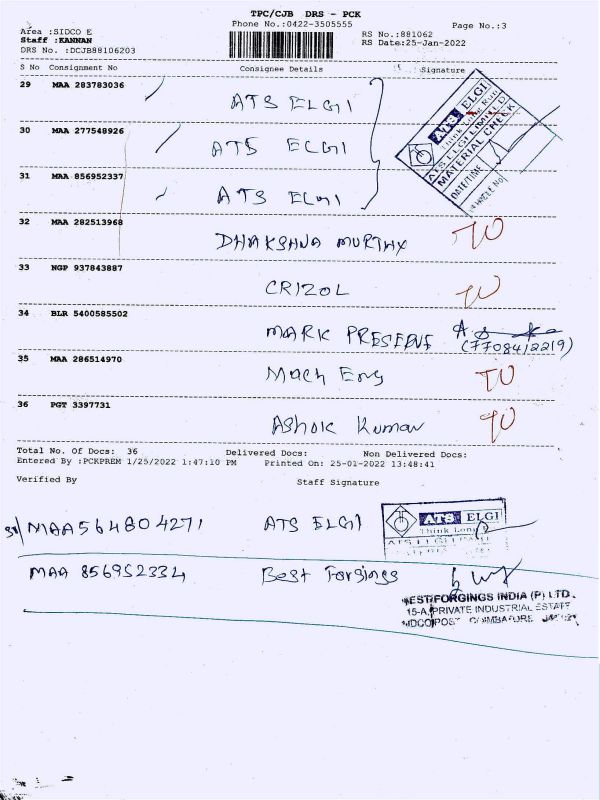 TPC/CJB DRS - PCK
Phone No.:0422-3505555
Page No.:3
Area :SIDCO E
Staff :KANNAN
DRS No. :DCJB88106203
RS No.:881062
RS Date:25-Jan-2022
S No Consignment No Consignee Details Signature
29 MAA 283783036 ATS ELGI
30 MAA 277548926 ATS ELGI
31 MAA 856952337 ATS ELGI
ATS ELGI
Think Long Run
ATS ELGI LIMITED
MATERIAL CHECK
DATE/TIME
32 MAA 282513968 DHAKSHNA MURTHY
33 NGP 937843887 CRIZOL
34 BLR 5400585502 MARK PRESERVE
(7708412219)
35 MAA 286514970 Mach Eng
36 PGT 3397731 Ashok Kumar
Total No. Of Docs: 36 Delivered Docs: Non Delivered Docs:
Entered By :PCKPREM 1/25/2022 1:47:10 PM Printed On: 25-01-2022 13:48:41
Verified By Staff Signature
MAA564804271 ATS ELGI
ATS ELGI
Think Long
MAA 856952334 Best Forgings
BEST FORGINGS INDIA (P) LTD.
15-A, PRIVATE INDUSTRIAL ESTATE
SIDCO POST COIMBATORE